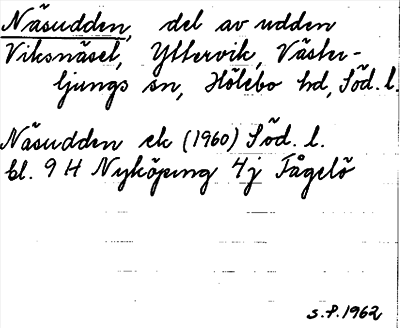 Näsudden, del av udden
Viksnäset, Yttervik, Väster-
ljungs sn, Hölebo hd, Söd. l.
Näsudden ek (1960) Söd. l.
bl. 9 H Nyköping 4j Fågelö
s.f. 1962